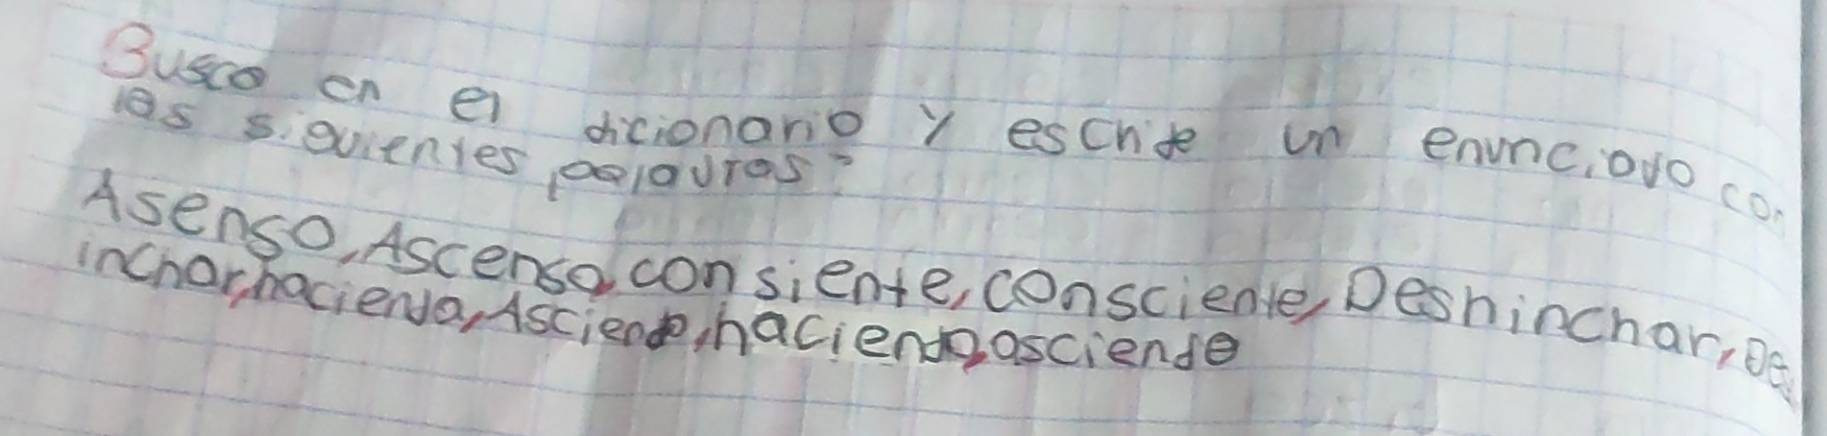 Busca en el dicionario y escribe un enunciado con
las siguientes palavras:
Asenso, Ascenso, consiente, consciente, Deshinchar, Des
inchar, hacienda, Asciende, haciendo, asciende